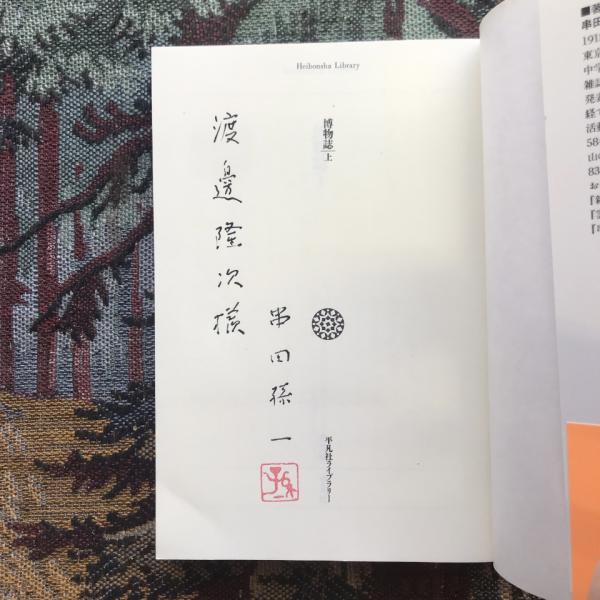 Heibonsha Library
博物誌 上
渡邊隆次様
串田孫一
平凡社ライブラリー
■著
串田
191
東京
中学
雑誌
発表
経て
活動
58
山の
83
お